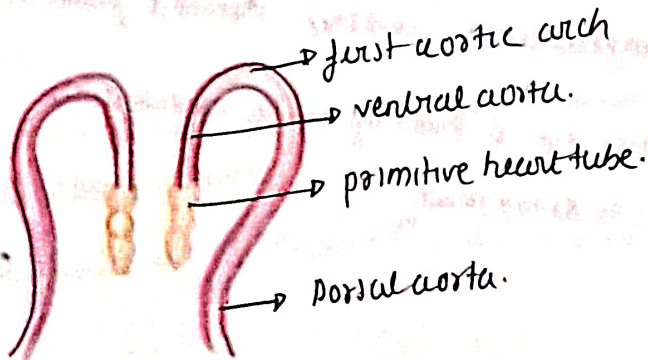 first aortic arch
ventral aorta.
primitive heart tube.
Dorsal aorta.